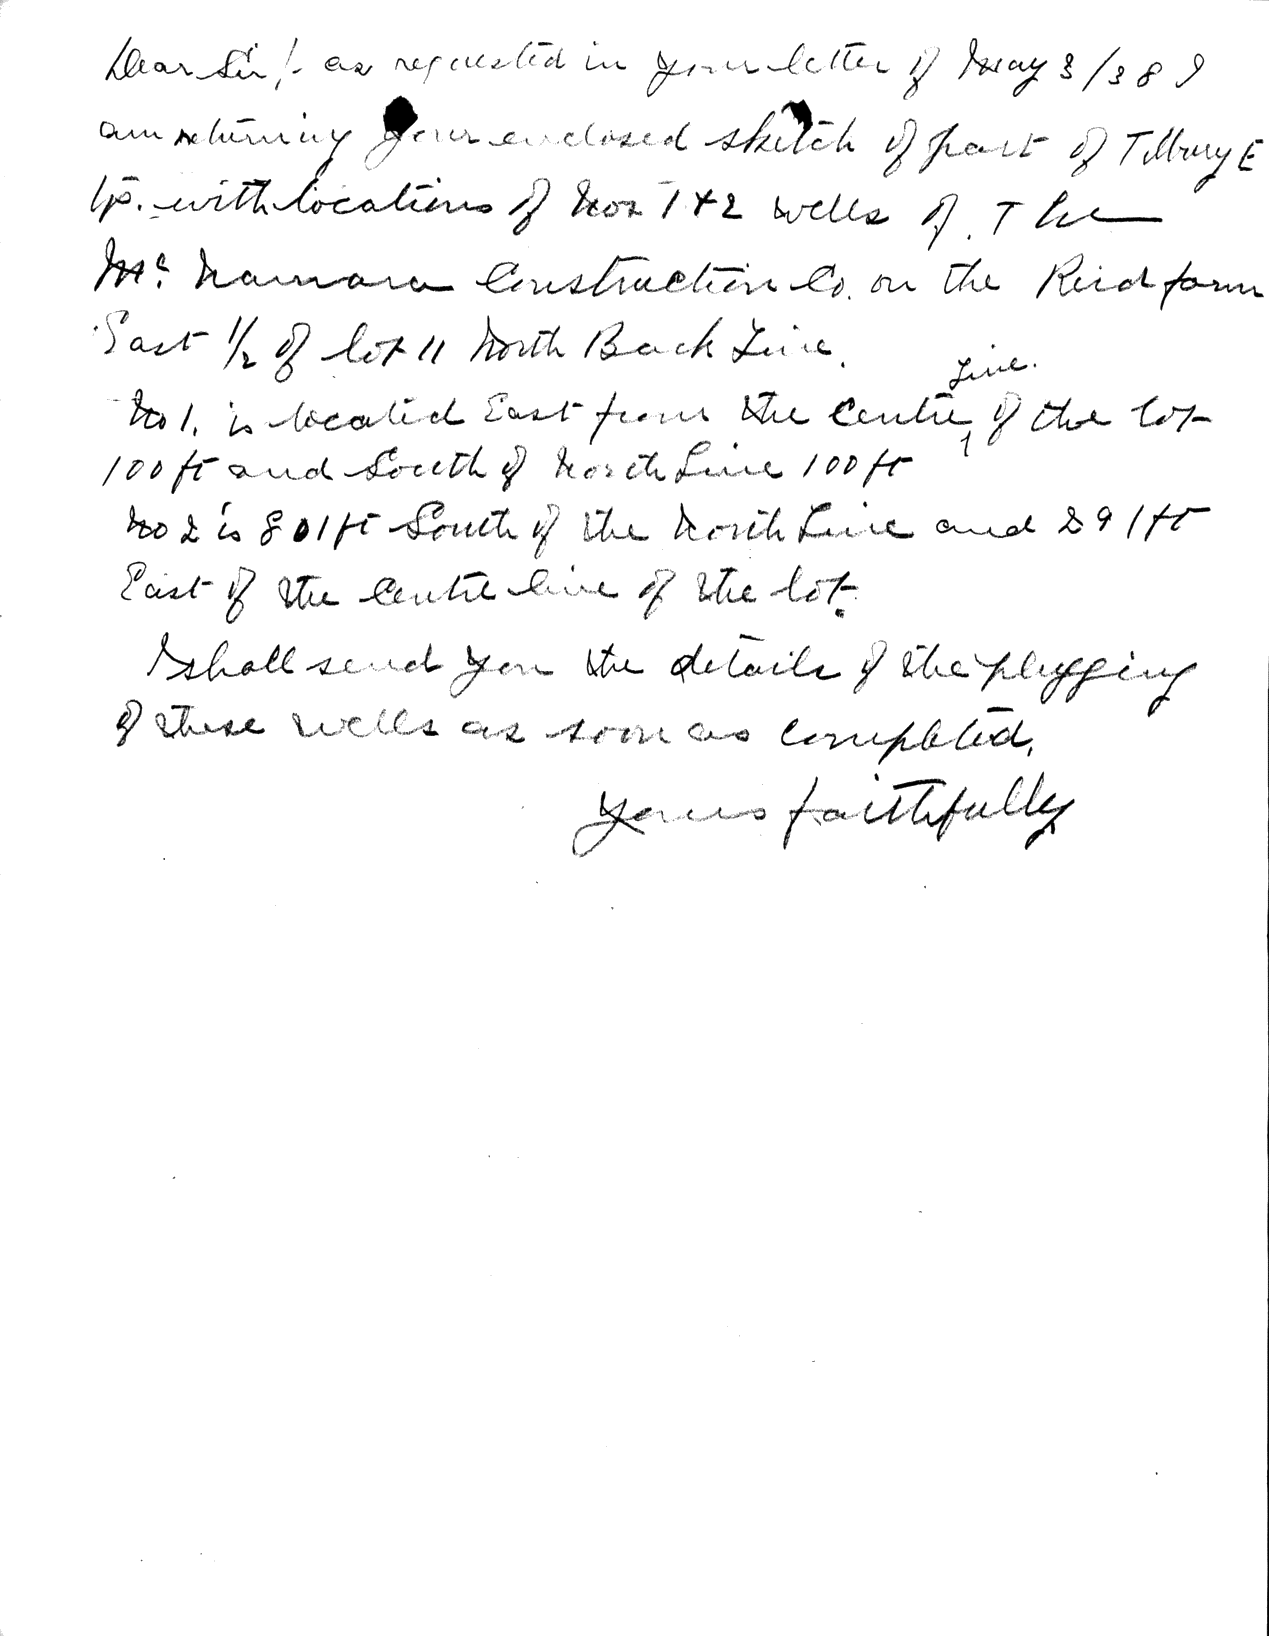 Dear Sir/- as requested in your letter of May 3/38 I
am returning your enclosed sketch of part of Tilbury E
tp. with locations of Nos 1+2 wells of The
Mc Namara Construction Co. on the Reid farm
East 1/2 of lot 11 North Back Line.
No 1. is located East from the Centre Line. of the lot
100 ft and South of North Line 100 ft
No 2 is 801 ft South of the North Line and 291 ft
East of the Centre line of the lot.
I shall send you the details of the plugging
of these wells as soon as completed.
Yours faithfully